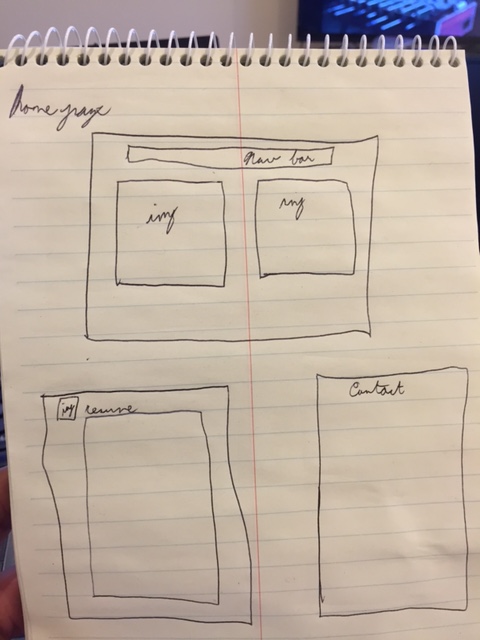 Home page
Nav bar
img
img
img resume
Contact